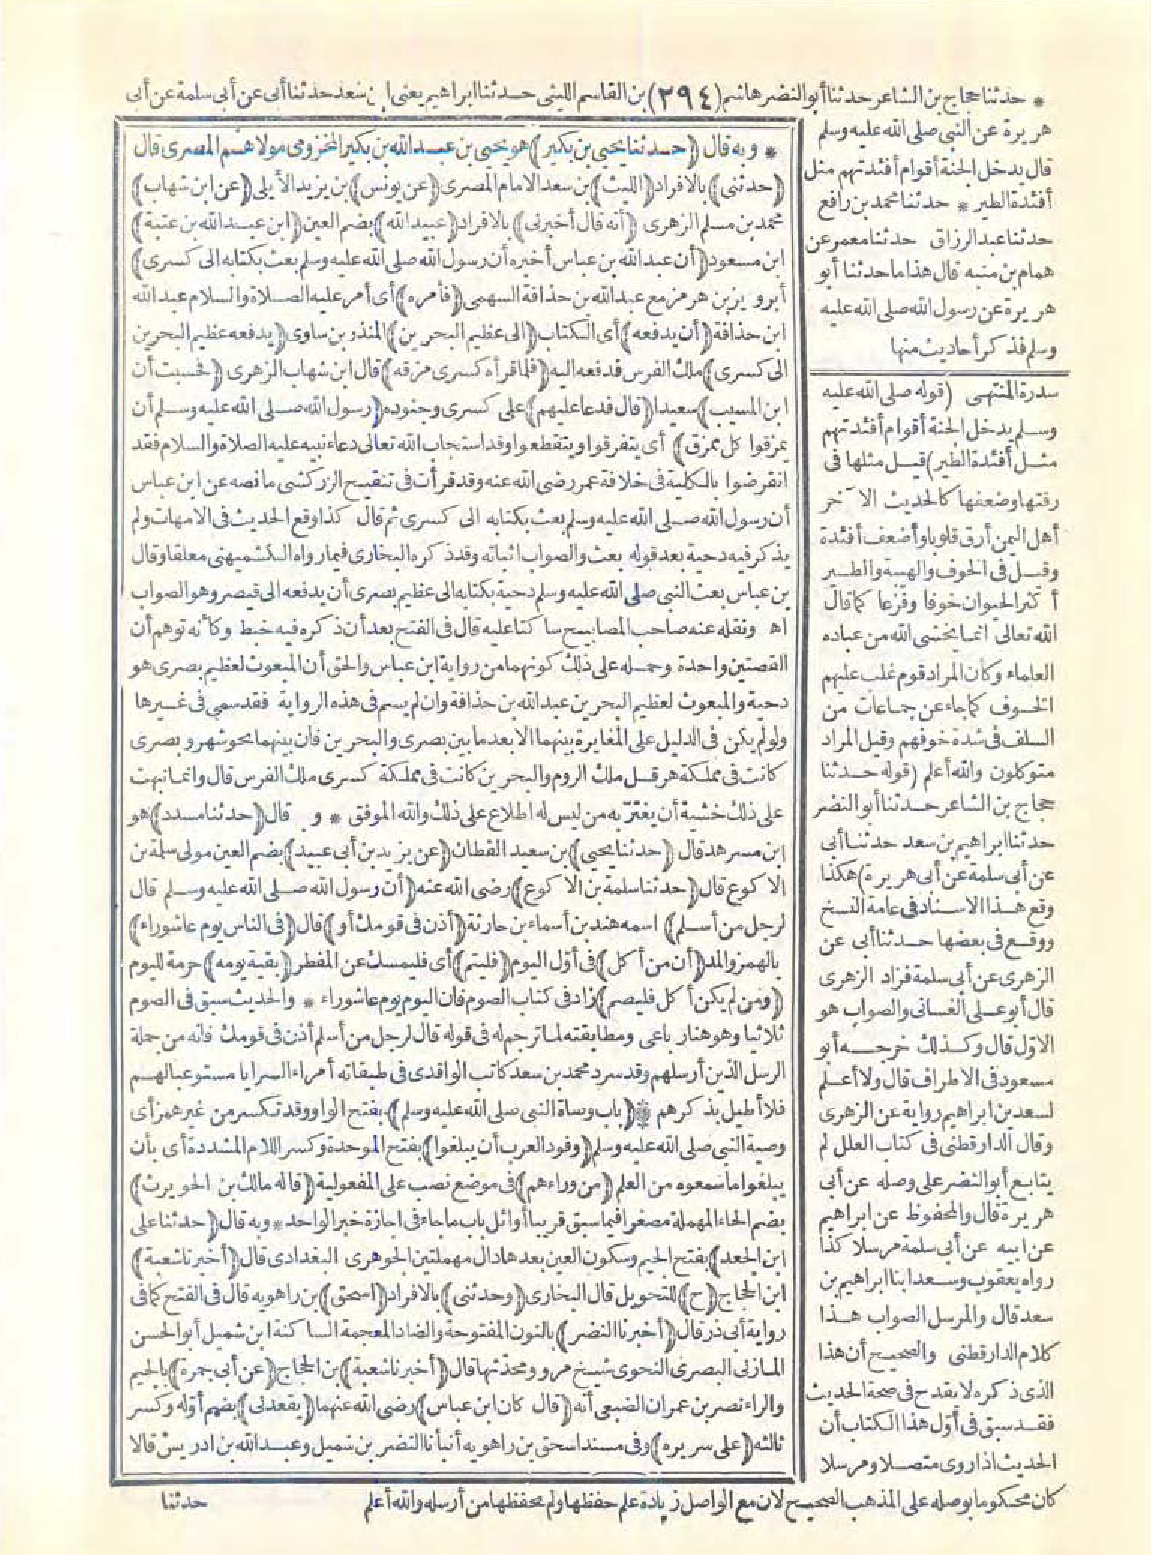 * حدثنا حجاج بن الشاعر حدثنا أبو النضر هاشم (٢٩٤) بن القاسم الليثى حدثنا ابراهيم يعنى ابن سعد حدثنا أبى عن أبى سلمة عن أبى
هريرة عن النبى صلى الله عليه وسلم
قال يدخل الجنة أقوام أفئدتهم مثل
أفئدة الطير * حدثنا محمد بن رافع
حدثنا عبد الرزاق حدثنا معمر عن
همام بن منبه قال هذا ما حدثنا أبو
هريرة عن رسول الله صلى الله عليه
وسلم فذكر أحاديث منها
سدرة المنتهى (قوله صلى الله عليه
وسلم يدخل الجنة أقوام أفئدتهم
مثل أفئدة الطير) قيل مثلها فى
رقتها وضعفها كالحديث الآخر
أهل اليمن أرق قلوبا وأضعف أفئدة
وقيل فى الخوف والهيبة والطير
أكثر الحيوان خوفا وفزعا كما قال
الله تعالى انما يخشى الله من عباده
العلماء وكان المراد قوم غلب عليهم
الخوف كما جاء عن جماعات من
السلف فى شدة خوفهم وقيل المراد
متوكلون والله أعلم (قوله حدثنا
حجاج بن الشاعر حدثنا أبو النضر
حدثنا ابراهيم بن سعد حدثنا أبى
عن أبى سلمة عن أبى هريرة) هكذا
وقع هذا الاسناد فى عامة النسخ
ووقع فى بعضها حدثنا أبى عن
الزهرى عن أبى سلمة فزاد الزهرى
قال أبو على الغسانى والصواب هو
الاول قال وكذلك خرجه أبو
مسعود فى الاطراف قال ولا أعلم
لسعد بن ابراهيم رواية عن الزهرى
وقال الدارقطنى فى كتاب العلل لم
يتابع أبو النضر على وصله عن أبى
هريرة قال والمحفوظ عن ابراهيم
عن ابيه عن أبى سلمة مرسلا كذا
رواه يعقوب وسعد ابنا ابراهيم بن
سعد قال والمرسل الصواب هذا
كلام الدارقطنى والصحيح أن هذا
الذى ذكره لا يقدح فى صحة الحديث
فقد سبق فى أول هذا الكتاب أن
الحديث اذا روى متصلا ومرسلا
كان محكوما بوصله على المذهب الصحيح لان مع الواصل زيادة علم حفظها ولم يحفظها من أرسله والله أعلم
* وبه قال (حدثنا يحيى بن بكير) هو يحيى بن عبد الله بن بكير المخزومى مولاهم المصرى قال
(حدثنى) بالافراد (الليث) بن سعد الامام المصرى (عن يونس) بن يزيد الأيلى (عن ابن شهاب)
محمد بن مسلم الزهرى (أنه قال أخبرنى) بالافراد (عبيد الله) بضم العين (ابن عبد الله بن عتبة)
ابن مسعود (أن عبد الله بن عباس أخبره أن رسول الله صلى الله عليه وسلم بعث بكتابه الى كسرى)
أبرويز بن هرمز مع عبد الله بن حذافة السهمى (فأمره) أى أمر عليه الصلاة والسلام عبد الله
ابن حذافة (أن يدفعه) أى الكتاب (الى عظيم البحرين) المنذر بن ساوى (يدفعه عظيم البحرين
الى كسرى) ملك الفرس فدفعه اليه (فلما قرأه كسرى مزقه) قال ابن شهاب الزهرى (فحسبت أن
ابن المسيب) سعيدا (قال فدعا عليهم) على كسرى وجنوده (رسول الله صلى الله عليه وسلم أن
يمزقوا كل ممزق) أى يتفرقوا ويتقطعوا وقد استجاب الله تعالى دعاء نبيه عليه الصلاة والسلام فقد
انقرضوا بالكلية فى خلافة عمر رضى الله عنه وقد قرأت فى تنقيح الزركشى ما نصه عن ابن عباس
أن رسول الله صلى الله عليه وسلم بعث بكتابه الى كسرى ثم قال كذا وقع الحديث فى الامهات ولم
يذكر فيه دحية بعد قوله بعث والصواب اثباته وقد ذكره البخارى فيما رواه الكشميهنى معلقا وقال
بن عباس بعث النبى صلى الله عليه وسلم دحية بكتابه الى عظيم بصرى أن يدفعه الى قيصر وهو الصواب
اه ونقله عنه صاحب المصابيح ساكتا عليه قال فى الفتح بعد أن ذكره فيه خبط وكأنه توهم أن
القصتين واحدة وحمله على ذلك كونهما من رواية ابن عباس والحق أن المبعوث لعظيم بصرى هو
دحية والمبعوث لعظيم البحرين عبد الله بن حذافة وان لم يسم فى هذه الرواية فقد سمى فى غيرها
ولو لم يكن فى الدليل على المغايرة بينهما الا بعد ما بين بصرى والبحرين فان بينهما نحو شهر وبصرى
كانت فى مملكة هرقل ملك الروم والبحرين كانت فى مملكة كسرى ملك الفرس قال وانما نبهت
على ذلك خشية أن يغتر به من ليس له اطلاع على ذلك والله الموفق * و قال (حدثنا مسدد) هو
ابن مسرهد قال (حدثنا يحيى) بن سعيد القطان (عن يزيد بن أبى عبيد) بضم العين مولى سلمة بن
الاكوع قال (حدثنا سلمة بن الاكوع) رضى الله عنه (أن رسول الله صلى الله عليه وسلم قال
لرجل من أسلم) اسمه هند بن أسماء بن حارثة (أذن فى قومك أو) قال (فى الناس يوم عاشوراء)
بالهمز والمد (أن من أكل) فى أول اليوم (فليتم) أى فليمسك عن المفطر (بقية يومه) حرمة لليوم
(ومن لم يكن أكل فليصم) زاد فى كتاب الصوم فان اليوم يوم عاشوراء * والحديث سبق فى الصوم
ثلاثيا وهو هنا رباعى ومطابقته لما ترجم له فى قوله قال لرجل من أسلم أذن فى قومك فانه من جملة
الرسل الذين أرسلهم وقد سرد محمد بن سعد كاتب الواقدى فى طبقاته أمراء السرايا مستوعبا لهم
فلا أطيل بذكرهم * (باب وصاة النبى صلى الله عليه وسلم) بفتح الواو وقد تكسر من غير همز أى
وصية النبى صلى الله عليه وسلم (وفود العرب أن يبلغوا) بفتح الموحدة وكسر اللام المشددة أى بأن
يبلغوا ما سمعوه من العلم (من وراءهم) فى موضع نصب على المفعولية (قاله مالك بن الحويرث)
بضم الحاء المهملة مصغرا فيما سبق قريبا أوائل باب ما جاء فى اجازة خبر الواحد * وبه قال (حدثنا على
ابن الجعد) بفتح الجيم وسكون العين بعدها دال مهملتين الجوهرى البغدادى قال (أخبرنا شعبة)
ابن الحجاج (ح) للتحويل قال البخارى (وحدثنى) بالافراد (اسحق) بن راهويه قال فى الفتح كما فى
رواية أبى ذر قال (أخبرنا النضر) بالنون المفتوحة والضاد المعجمة الساكنة ابن شميل أبو الحسن
المازنى البصرى النحوى شيخ مرو ومحدثها قال (أخبرنا شعبة) بن الحجاج (عن أبى جمرة) بالجيم
والراء نصر بن عمران الضبعى أنه (قال كان ابن عباس) رضى الله عنهما (يقعدنى) بضم أوله وكسر
ثالثه (على سريره) وفى مسند اسحق بن راهويه أنبأنا النضر بن شميل وعبد الله بن ادريس قالا
حدثنا